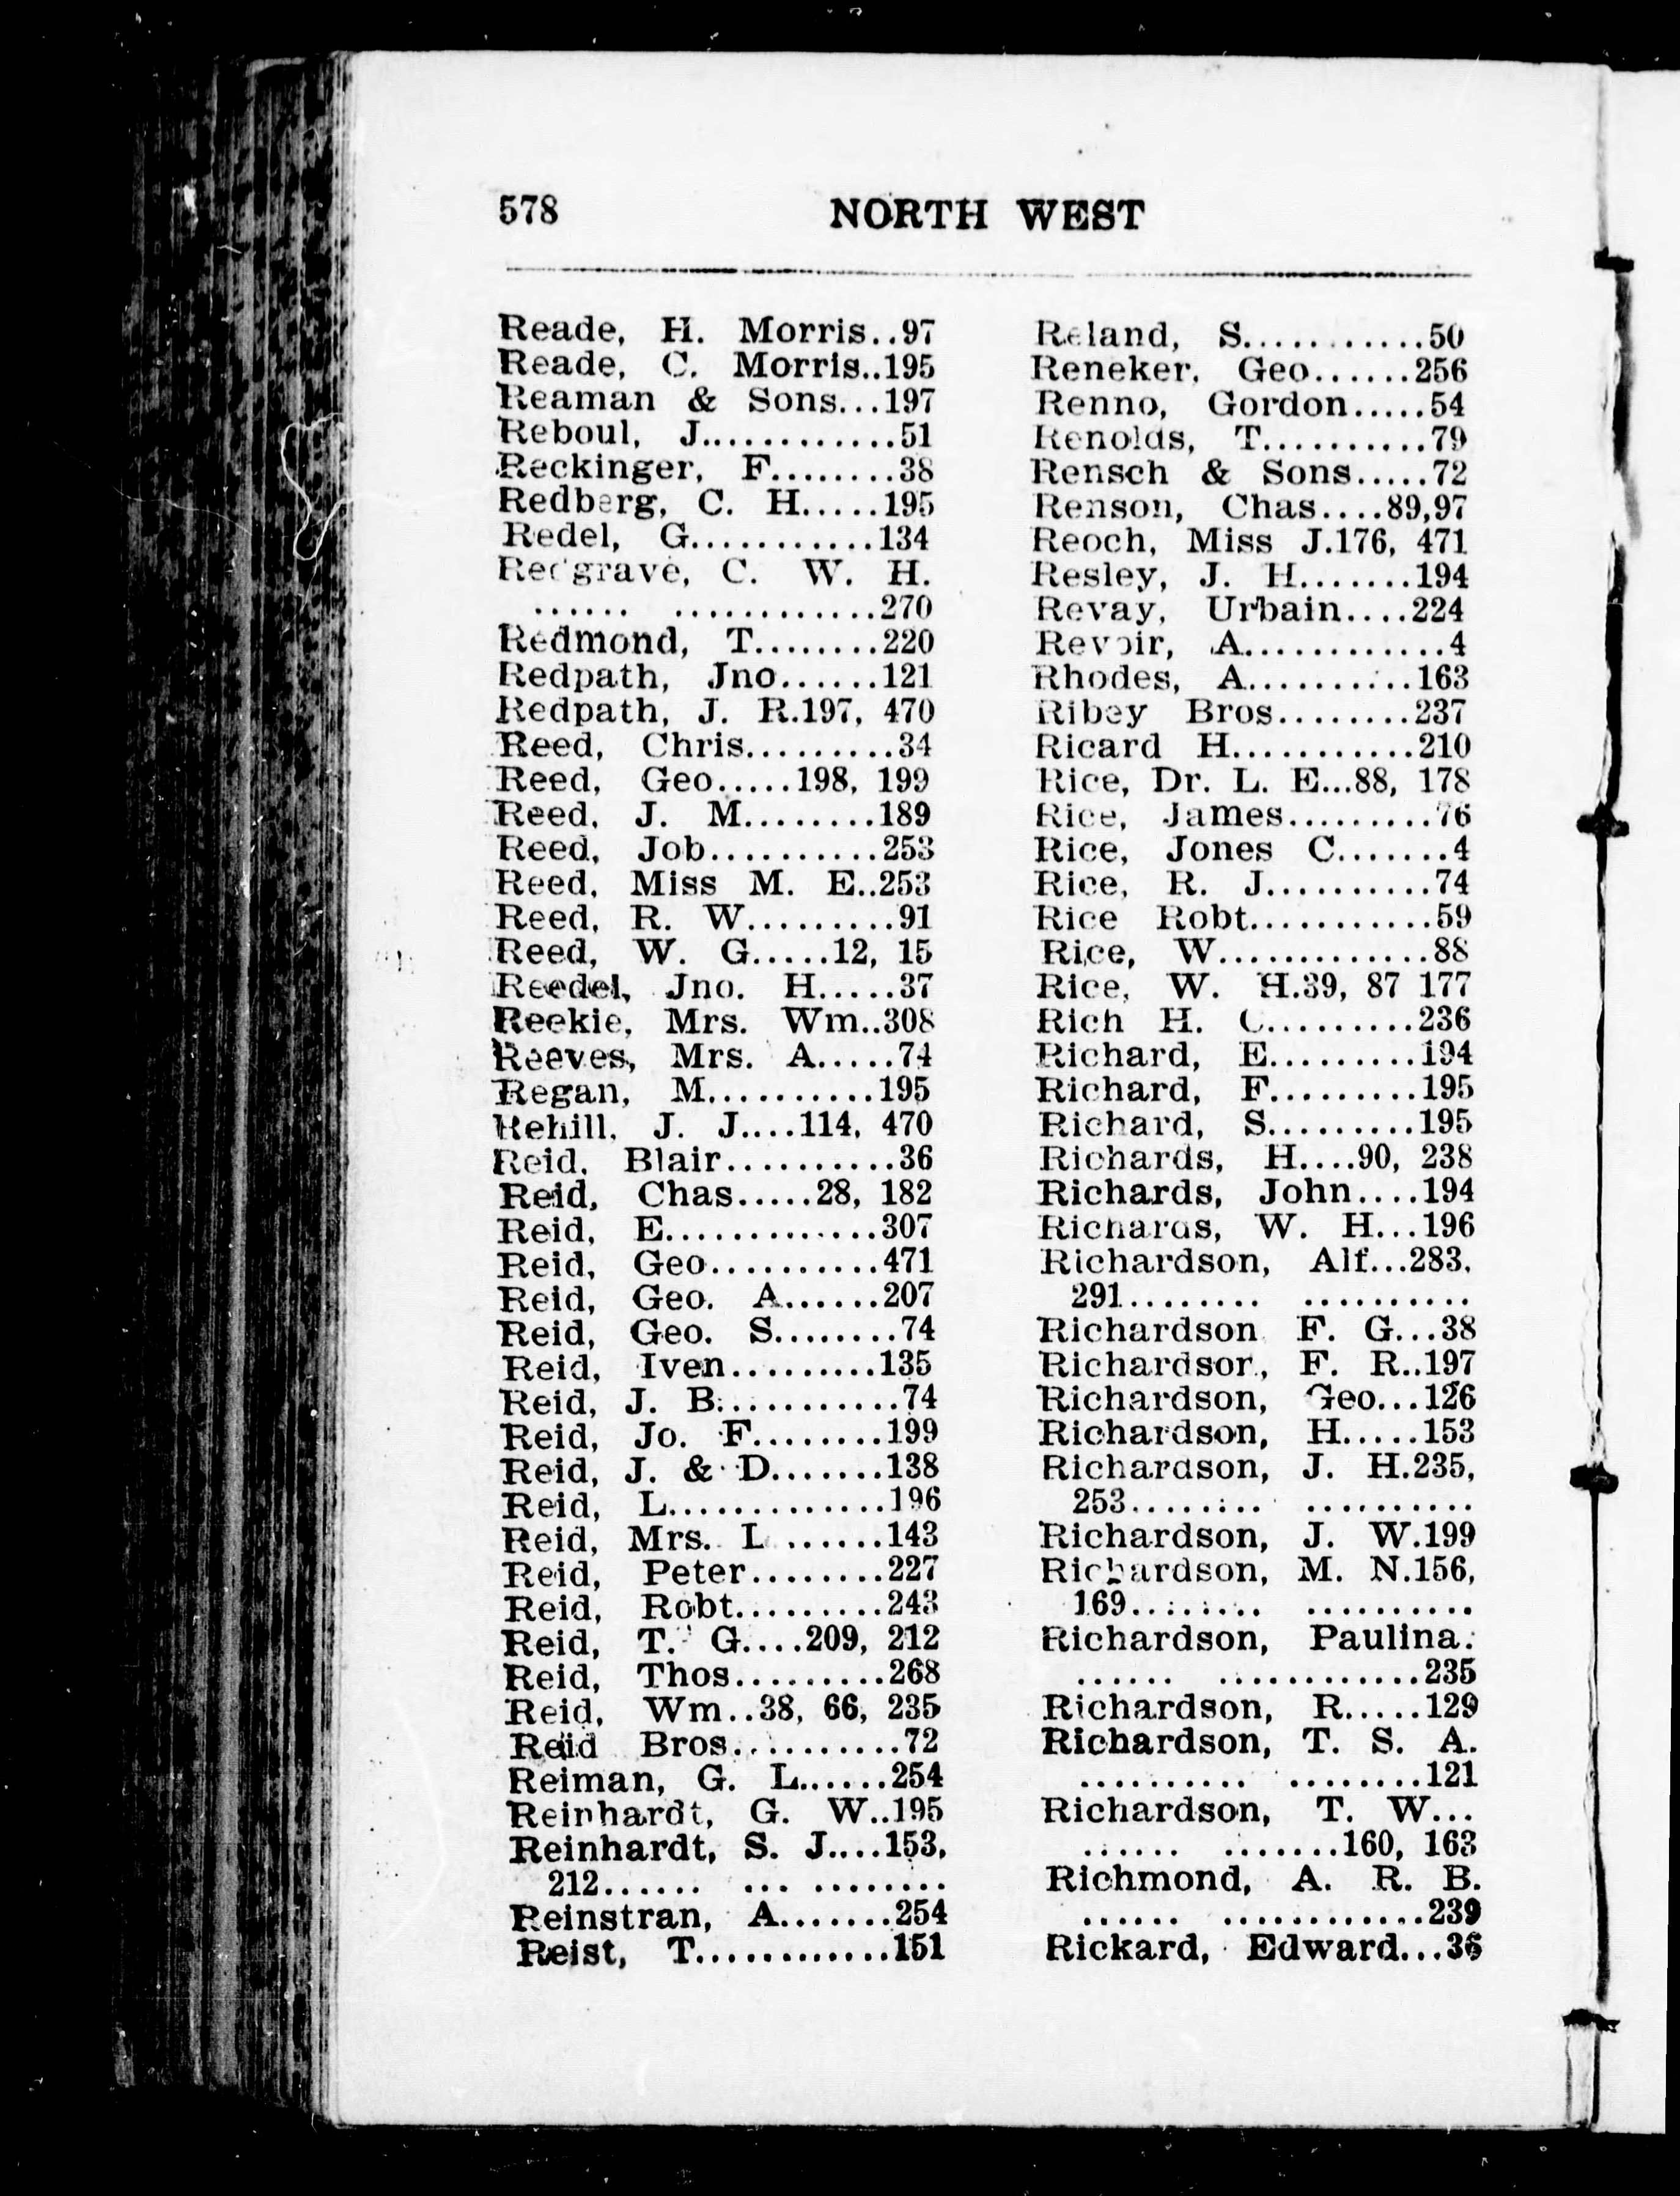 578
NORTH WEST
Reade, H. Morris..97
Reade, C. Morris..195
Reaman & Sons...197
Reboul, J............51
Reckinger, F........38
Redberg, C. H.....195
Redel, G...........134
Redgrave, C. W. H.
...... .............270
Redmond, T........220
Redpath, Jno......121
Redpath, J. R.197, 470
Reed, Chris.........34
Reed, Geo.....198, 199
Reed, J. M........189
Reed, Job..........253
Reed, Miss M. E..253
Reed, R. W.........91
Reed, W. G.....12, 15
Reedel, Jno. H.....37
Reekie, Mrs. Wm..308
Reeves, Mrs. A.....74
Regan, M..........195
Rehill, J. J....114, 470
Reid, Blair..........36
Reid, Chas.....28, 182
Reid, E.............307
Reid, Geo..........471
Reid, Geo. A......207
Reid, Geo. S........74
Reid, Iven.........135
Reid, J. B...........74
Reid, Jo. F........199
Reid, J. & D.......138
Reid, L.............196
Reid, Mrs. L ......143
Reid, Peter........227
Reid, Robt.........243
Reid, T. G....209, 212
Reid, Thos.........268
Reid, Wm..38, 66, 235
Reid Bros..........72
Reiman, G. L......254
Reinhardt, G. W..195
Reinhardt, S. J....153,
212...... ... ........
Reinstran, A.......254
Reist, T............151
Reland, S...........50
Reneker, Geo......256
Renno, Gordon.....54
Renolds, T..........79
Rensch & Sons.....72
Renson, Chas....89,97
Reoch, Miss J.176, 471
Resley, J. H.......194
Revay, Urbain....224
Revoir, A............4
Rhodes, A..........163
Ribey Bros........237
Ricard H...........210
Rice, Dr. L. E...88, 178
Rice, James.........76
Rice, Jones C.......4
Rice, R. J..........74
Rice Robt...........59
Rice, W.............88
Rice, W. H.39, 87 177
Rich H. C.........236
Richard, E.........194
Richard, F.........195
Richard, S.........195
Richards, H....90, 238
Richards, John....194
Richards, W. H...196
Richardson, Alf...283,
291........ ..........
Richardson F. G...38
Richardson, F. R..197
Richardson, Geo...126
Richardson, H.....153
Richardson, J. H.235,
253........ ..........
Richardson, J. W.199
Richardson, M. N.156,
169........ ..........
Richardson, Paulina.
...... ............235
Richardson, R.....129
Richardson, T. S. A.
.......... ........121
Richardson, T. W...
...... .......160, 163
Richmond, A. R. B.
...... ............239
Rickard, Edward...36